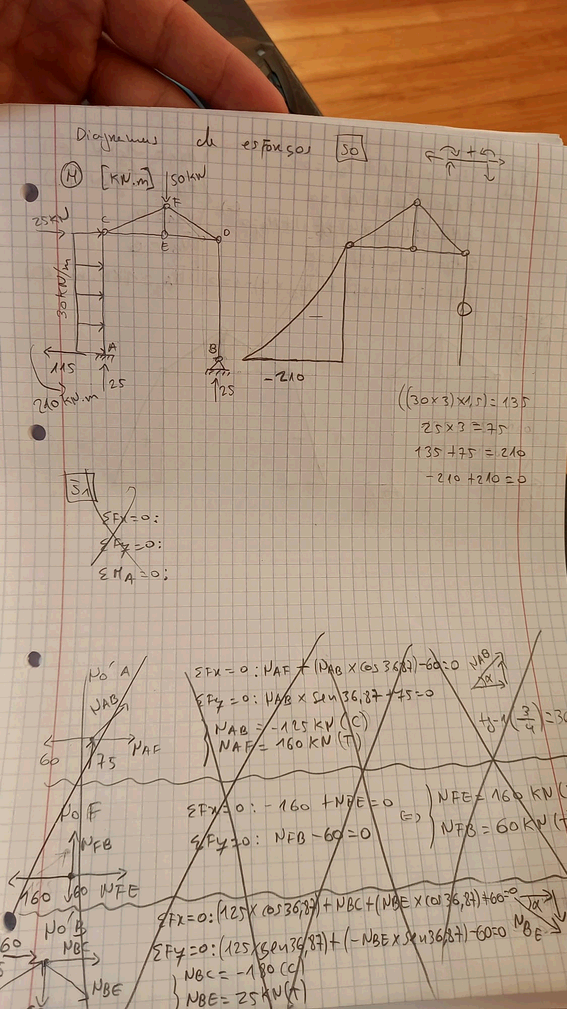 Diagramas de esforços S0
M [KN.m] 50KN
F
25KN
C
D
E
30KN/m
A
B
115
25
25
210 KN.m
-
-210
((30×3)×1,5) = 135
25×3 = 75
135+75 = 210
-210+210 = 0
S1
ΣFx=0:
ΣFy=0:
ΣMA=0:
Nó A
NAB
60
75
NAF
ΣFx=0: NAF + (NAB × cos 36,87) - 60 = 0
NAB
α
ΣFy=0: NAB × sen 36,87 + 75 = 0
NAB = -125 KN (C)
NAF = 160 KN (T)
tg-1 (3/4) = 36
Nó F
NFB
160
60
NFE
ΣFx=0: -160 + NFE = 0
ΣFy=0: NFB - 60 = 0
(=)
NFE = 160 KN (
NFB = 60 KN (
Nó B
60
NBC
NBE
ΣFx=0: (125 × cos 36,87) + NBC + (NBE × cos 36,87) + 60 = 0
α
NBE
ΣFy=0: (125 × sen 36,87) + (-NBE × sen 36,87) - 60 = 0
NBC = -180 (C)
NBE = 25 KN (T)